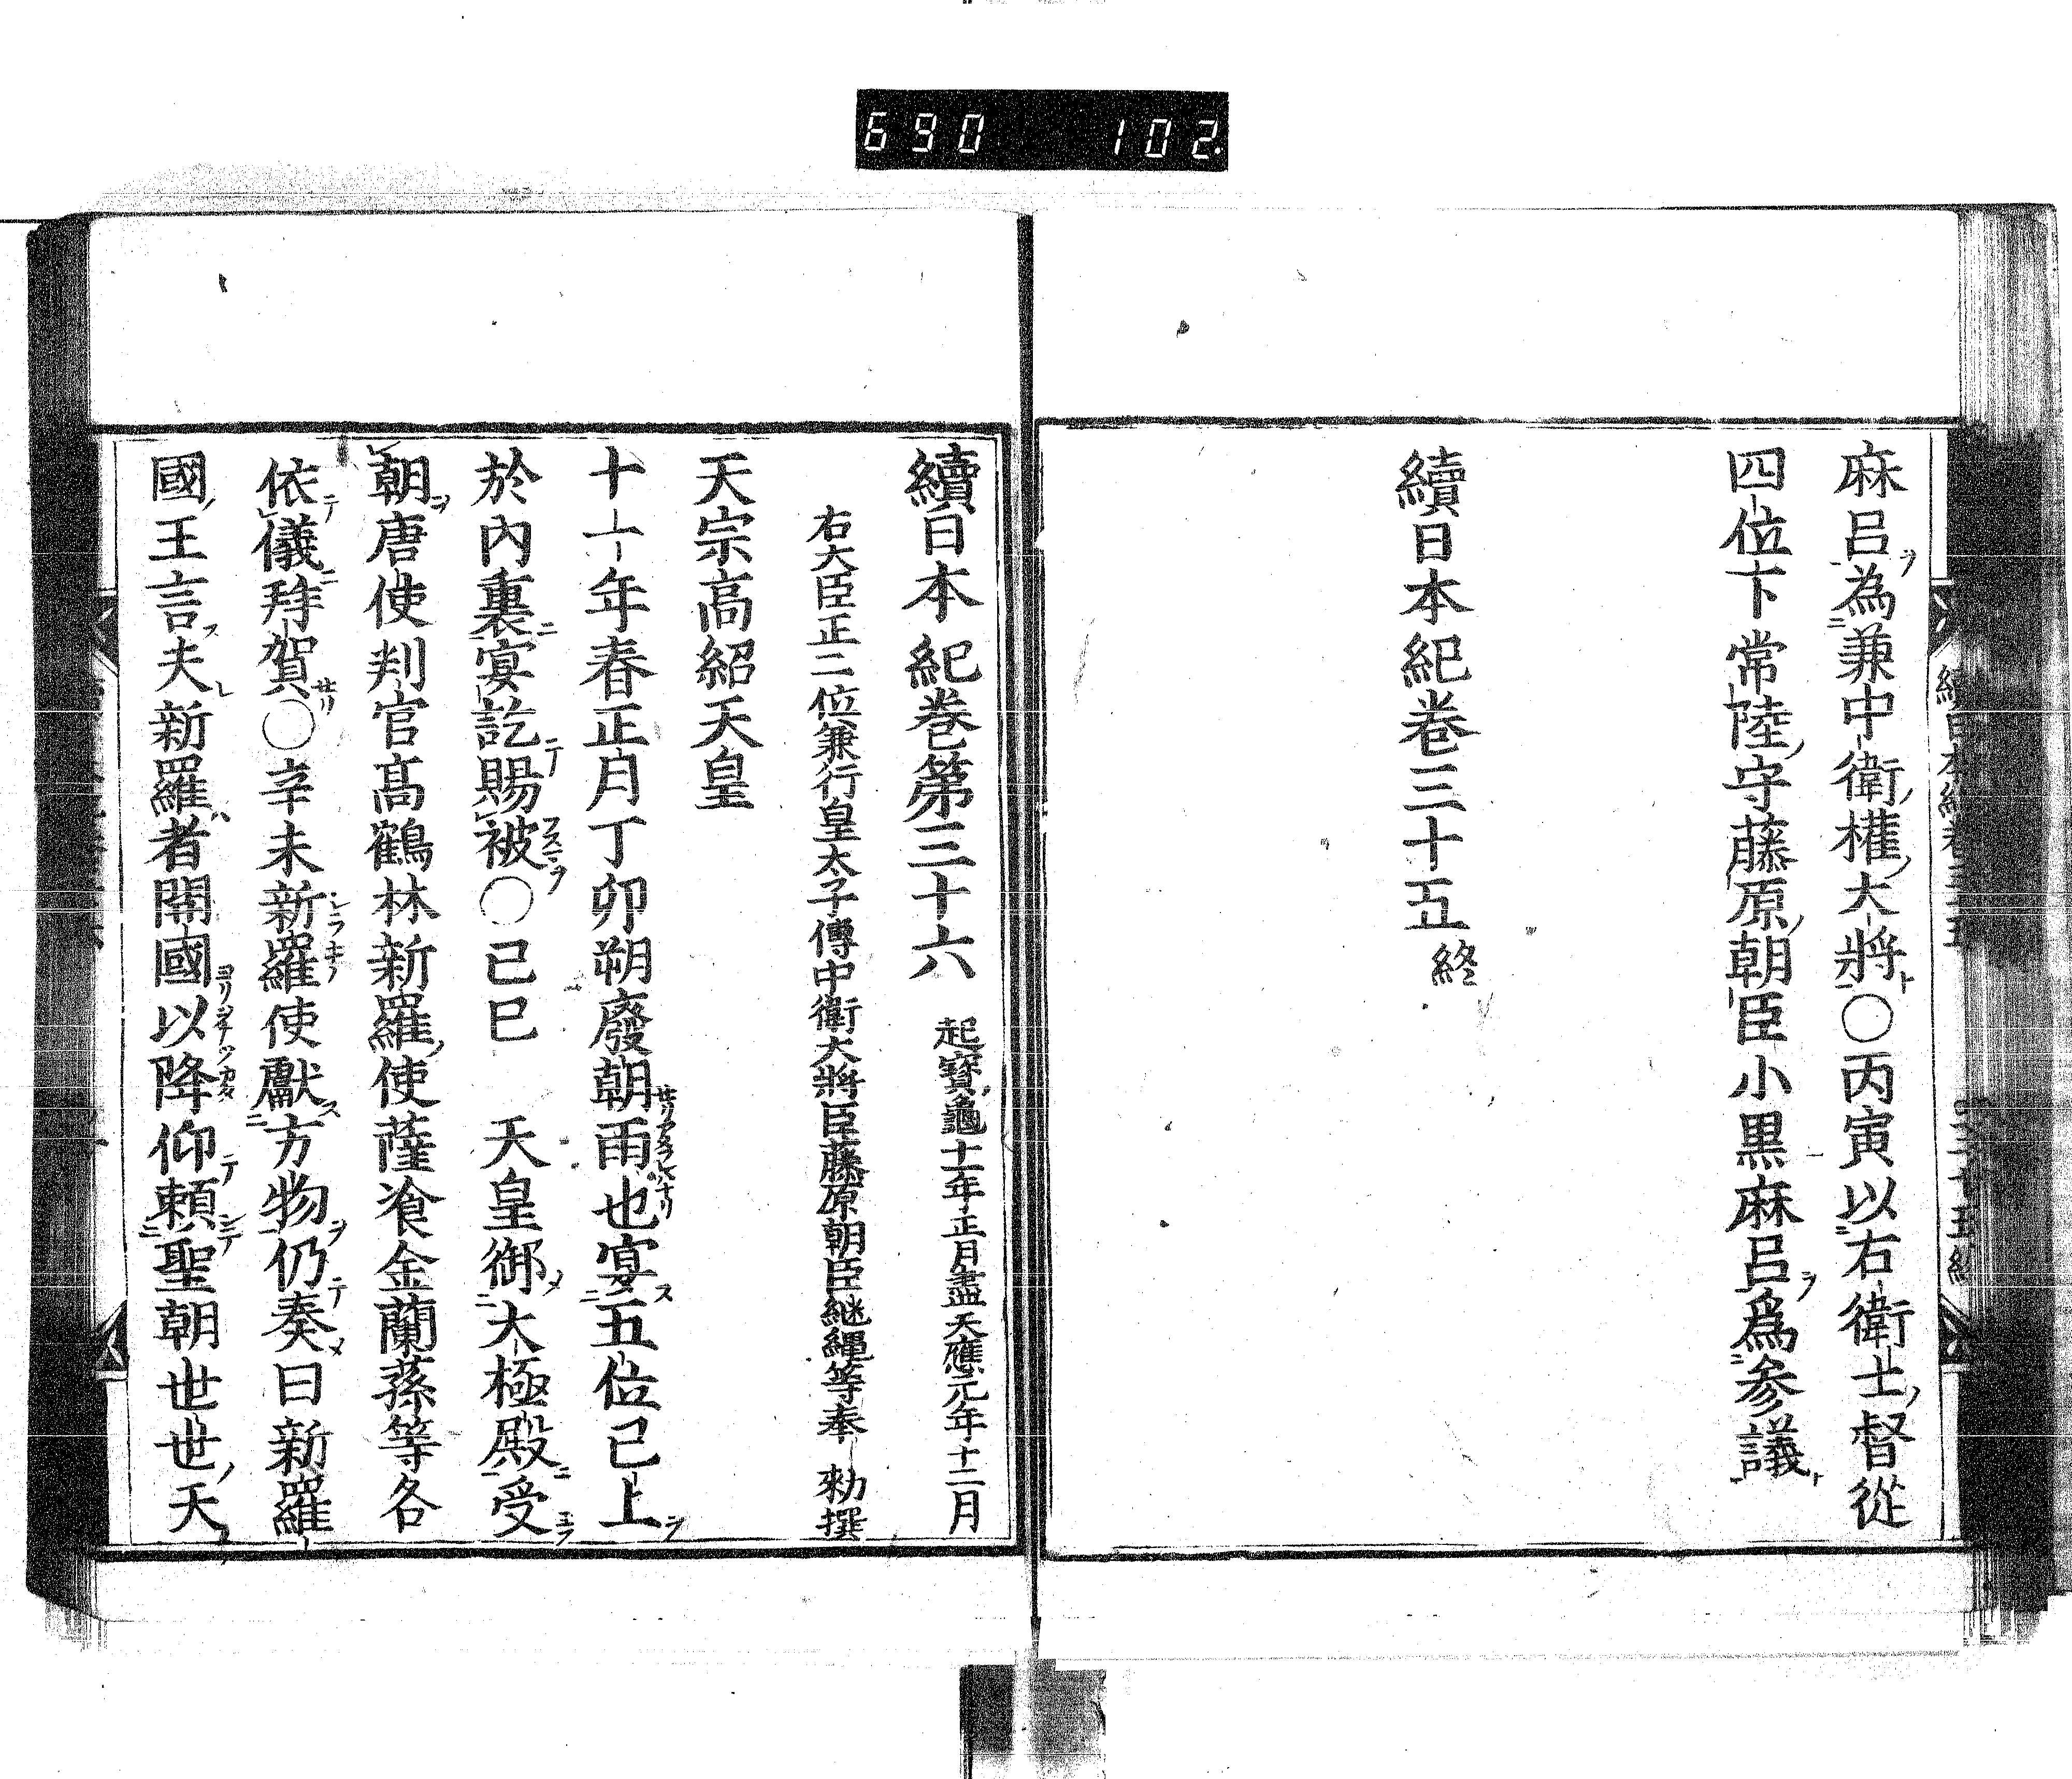 690 102
麻呂為兼中衛權大將○丙寅以右衛士督從
四位下常陸守藤原朝臣小黒麻呂爲参議
續日本紀卷三十五 終
續日本紀卷第三十六 起寶龜十一年正月盡天應元年十二月
右大臣正二位兼行皇太子傅中衛大將臣藤原朝臣継縄等奉 勅撰
天宗高紹天皇
十一年春正月丁卯朔廢朝雨也宴五位已上
於內裏宴訖賜被○己巳 天皇御大極殿受
朝唐使判官髙鶴林新羅使薩飡金蘭蓀等各
依儀拜賀○辛未新羅使獻方物仍奏曰新羅
國王言夫新羅者開國以降仰頼聖朝世世天